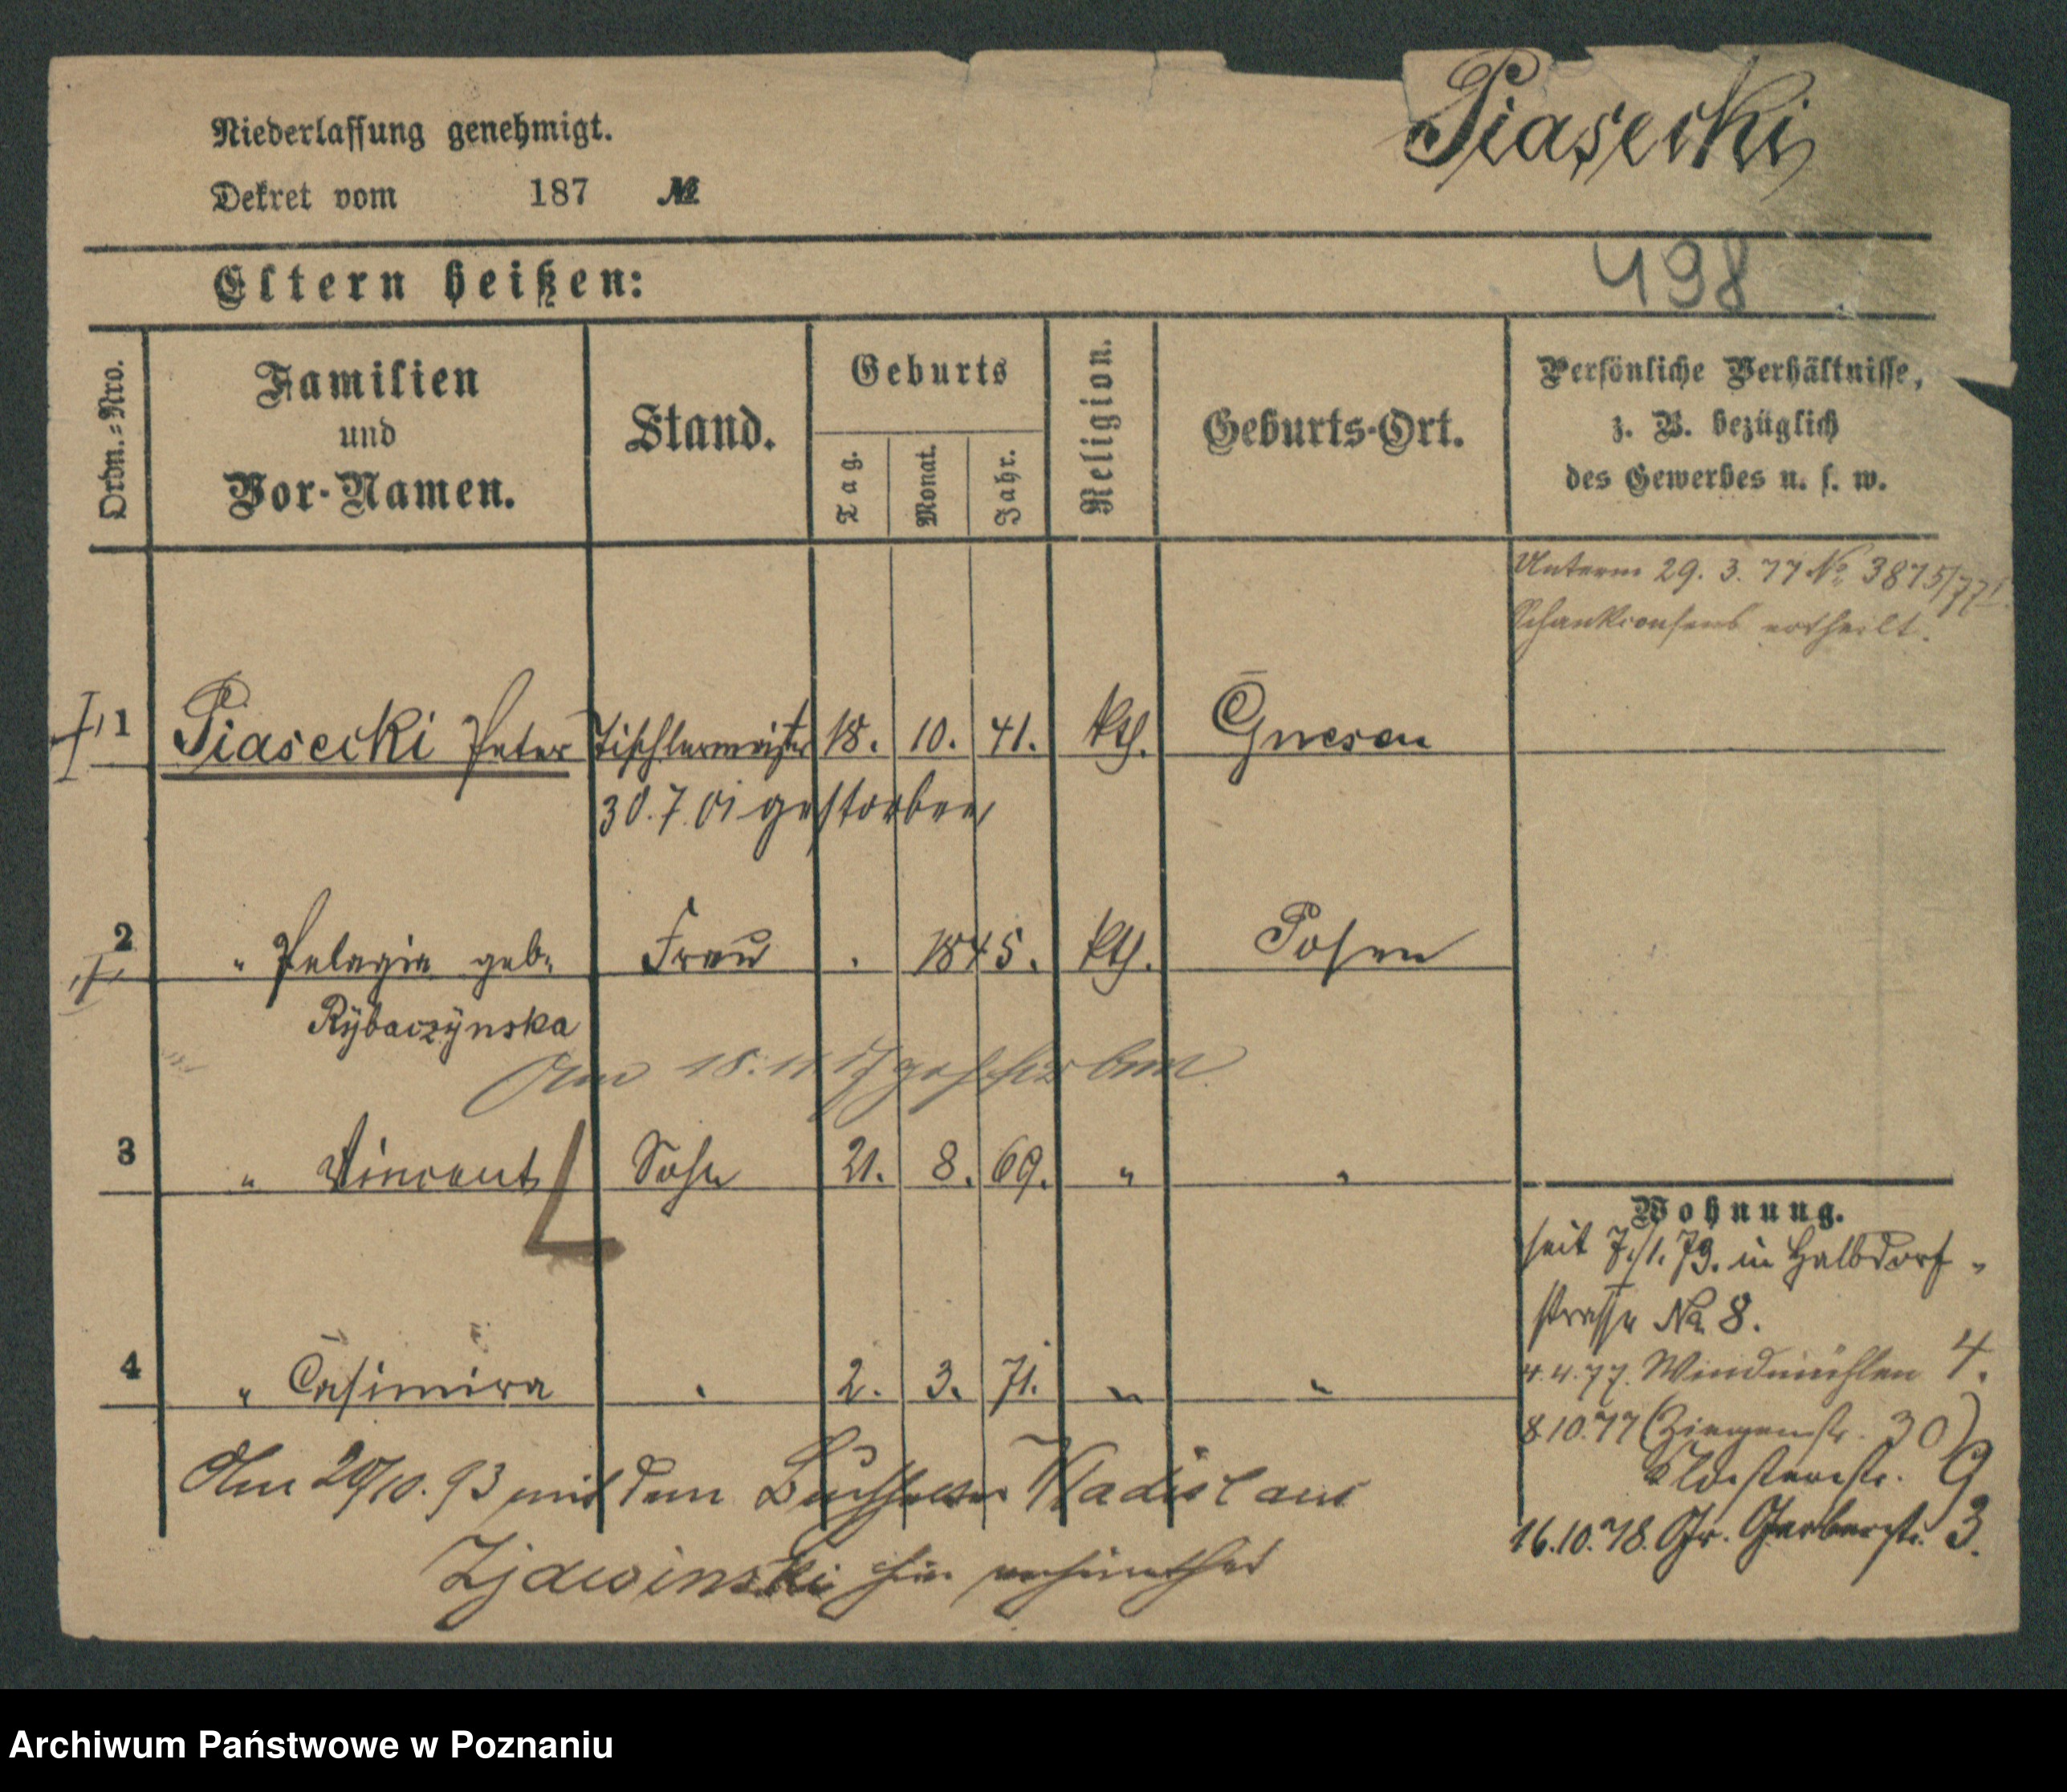 Piasecki
Niederlassung genehmigt.
Dekret vom 187 №
498
Eltern heißen:
Ordn.-Nro.
Familien
und
Vor-Namen.
Stand.
Geburts
Tag.
Monat.
Jahr.
Religion.
Geburts-Ort.
Persönliche Verhältnisse,
z. B. bezüglich
des Gewerbes u. s. w.
Unterm 29. 3. 77 № 3875/77 I.
Schankconsens ertheilt.
1 Piasecki Peter Tischlermeister 18. 10. 41. kth. Gnesen
30.7.01 gestorben
2 " Pelagia geb. Frau . 1845. kth. Posen
Rÿbaczÿnska
Am 18.11.17 gestorben
3 " Vincent Sohn 21. 8. 69. " "
4 " Casimira " 2. 3. 71. " "
Am 20/10. 93 mit dem Wladislaus
Zjawinski hier verheirathet
Wohnung.
seit 7./1. 79. in Halbdorf-
strasse No. 8.
4.4.77. Windmühlen 4.
8.10.77 (Ziegenstr. 30)
Klosterstr. 9
16.10.78. Gr. Gerberstr. 3.
Archiwum Państwowe w Poznaniu